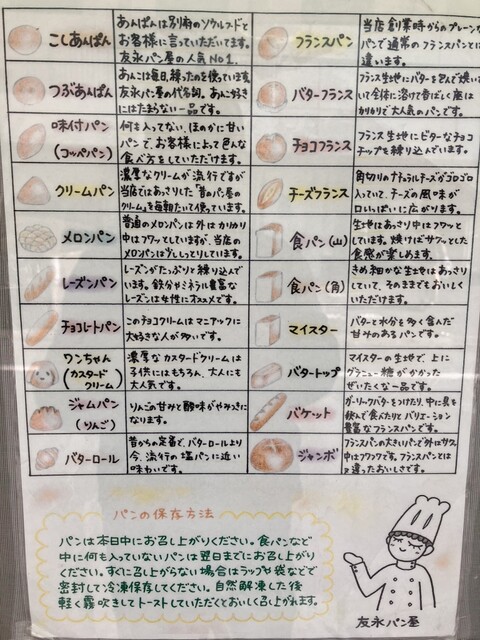 こしあんぱん
あんぱんは別府のソウルフードと
お客様に言っていただいてます。
友永パン屋の人気NO1.
つぶあんぱん
あんこは毎日、練ったのを使っています。
友永パン屋の代名詞。あんこ好きに
はたまらない一品です。
味付パン
(コッペパン)
何も入ってない、ほのかに甘い
パンで、お客様によって色んな
食べ方をしていただけます。
クリームパン
濃厚なクリームが流行ですが
当店ではあっさりした「昔のパン屋の
クリーム」を毎朝たいて使っています。
メロンパン
普通のメロンパンは外はカリカリ
中はフワッとしていますが、当店の
メロンパンはずっしりとしています。
レーズンパン
レーズンがたっぷりと練り込んで
います。鉄分やミネラル豊富な
レーズンは女性にオススメです。
チョコレートパン
このチョコクリームはマニアックに
大好きな人が多いです。
ワンちゃん
(カスタード
クリーム)
濃厚なカスタードクリームは
子供にはもちろん、大人にも
大人気です。
ジャムパン
(りんご)
りんごの甘みと酸味がやみつきに
なります。
バターロール
昔からの定番で、バターロールより
今、流行の塩パンに近い
味わいです。
フランスパン
当店創業時からのプレーンな
パンで通常のフランスパンとは
違います。
バターフランス
フランス生地にバターを包んで焼いて
いて全体に溶けて香ばしく底は
カリカリで大人気のパンです。
チョコフランス
フランス生地にビターなチョコ
チップを練り込んでいます。
チーズフランス
角切りのナチュラルチーズがゴロゴロ
入っていて、チーズの風味が
口いっぱいに広がります。
食パン(山)
生地はあっさり中はフワッと
しています。焼けばサクッとした
食感が楽しめます。
食パン(角)
きめ細かな生地はあっさり
していて、そのままでもおいしく
いただけます。
マイスター
バターと水分を多く含んだ
甘みのあるパンです。
バタートップ
マイスターの生地で、上に
グラニュー糖がかかった
ぜいたくな一品です。
バケット
ガーリックバターをつけたり、中に具を
挟んで食べたりとバリエーション
豊富なフランスパンです。
ジャンボ
フランスパンの大きいパンで外はサクッ
中はフワッです。フランスパンとは
違ったおいしさです。
パンの保存方法
パンは本日中にお召し上がりください。食パンなど
中に何も入っていないパンは翌日までにお召し上がり
ください。すぐに召し上がらない場合はラップや袋などで
密封して冷凍保存してください。自然解凍した後
軽く霧吹きしてトーストしていただくとおいしく召し上がれます。
友永パン屋